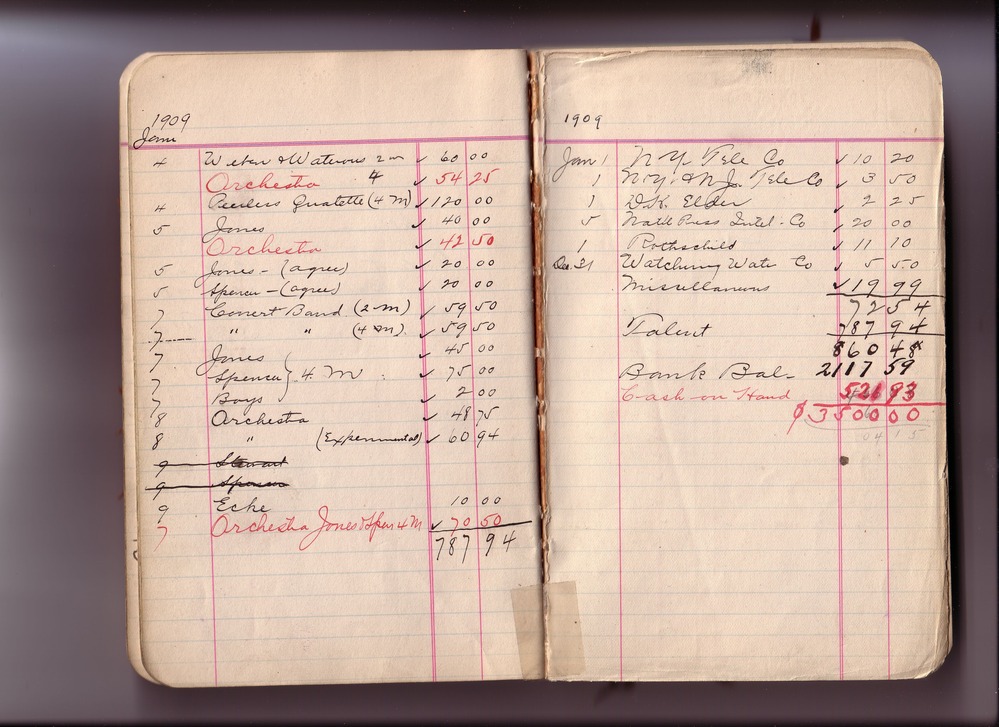 1909
Jany
4 Weber & Waterous 2 m ✓ 60 00
Orchestra 4 ✓ 54 25
4 Peerless Quatette (4 M) ✓ 120 00
5 Jones ✓ 40 00
Orchestra ✓ 42 50
5 Jones - (agree) ✓ 20 00
5 Spencer - (agree) ✓ 20 00
7 Concert Band (2-M) ✓ 59 50
7 " " (4 M). ✓ 59 50
7 Jones ✓ 45 00
7 Spencer } 4 M ✓ 75 00
7 Boys ✓ 2 00
8 Orchestra ✓ 48 75
8 " (Experimental) ✓ 60 94
9 Stewart
9 Spencer
9 Ecke 10 00
7 Orchestra Jones & Spen 4 M ✓ 70 50
787 94
1909
Jan 1 N.Y. Tele Co ✓ 10 20
1 N.Y. & N.J. Tele Co ✓ 3 50
1 Elder ✓ 2 25
5 Natl Press Intel. Co 20 00
1 Rothschild ✓ 11 10
Dec 31 Watchung Wate Co ✓ 5 50
Miscellaneous ✓ 19 99
72 54
Talent 787 94
860 48
Bank Bal- 2117 59
Cash on Hand 521 93
$ 3500 00